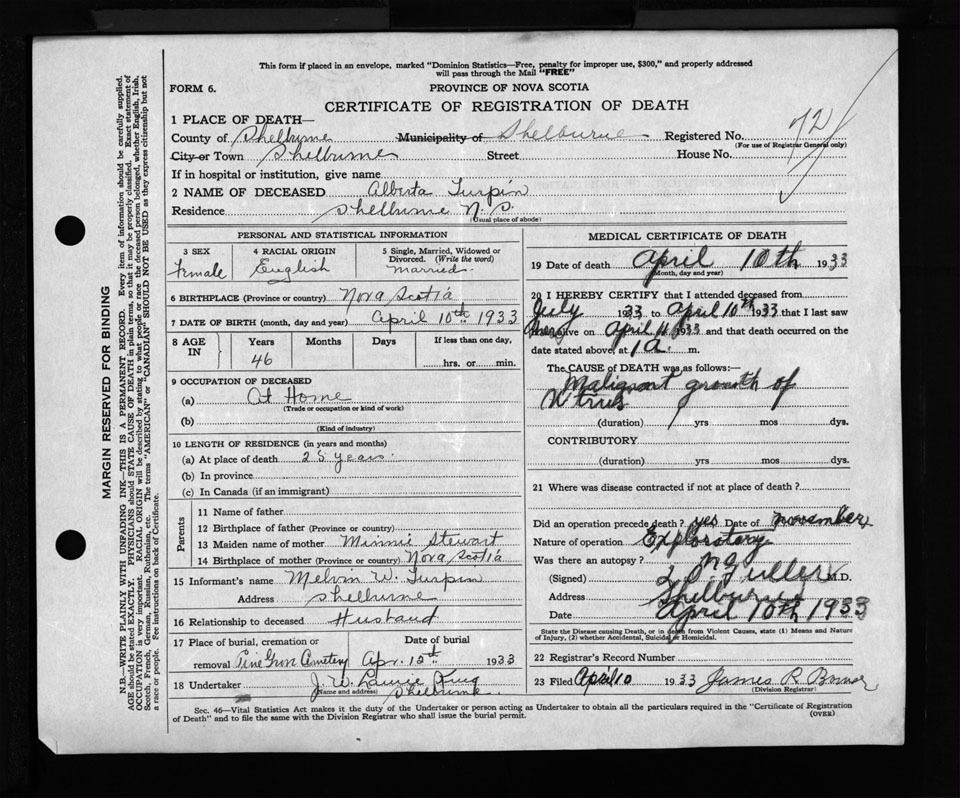 This form if placed in an envelope, marked "Dominion Statistics—Free, penalty for improper use, $300," and properly addressed
will pass through the Mail "FREE"
FORM 6. PROVINCE OF NOVA SCOTIA
CERTIFICATE OF REGISTRATION OF DEATH
1 PLACE OF DEATH—
County of Shelburne Municipality of Shelburne Registered No. 72
(For use of Registrar General only)
City or Town Shelburne Street House No.
If in hospital or institution, give name
2 NAME OF DECEASED Alberta Turpin
Residence Shelburne N.S.
(Usual place of abode)
PERSONAL AND STATISTICAL INFORMATION
3 SEX 4 RACIAL ORIGIN 5 Single, Married, Widowed or
Divorced. (Write the word)
Female English Married
6 BIRTHPLACE (Province or country) Nova Scotia
7 DATE OF BIRTH (month, day and year) April 10th 1933
8 AGE IN Years Months Days If less than one day,
46 hrs. or min.
9 OCCUPATION OF DECEASED
(a) At Home
(Trade or occupation or kind of work)
(b)
(Kind of industry)
10 LENGTH OF RESIDENCE (in years and months)
(a) At place of death 25 years
(b) In province
(c) In Canada (if an immigrant)
Parents
11 Name of father
12 Birthplace of father (Province or country)
13 Maiden name of mother Minnie Stewart
14 Birthplace of mother (Province or country) Nova Scotia
15 Informant's name Melvin W. Turpin
Address Shelburne
16 Relationship to deceased Husband
17 Place of burial, cremation or Date of burial
removal Pine Grove Cemetery Apr. 12th 1933
18 Undertaker J. W.
(Name and address) Shelburne
MEDICAL CERTIFICATE OF DEATH
19 Date of death April 10th 1933
(Month, day and year)
20 I HEREBY CERTIFY that I attended deceased from
July 1933 to April 10th 1933 that I last saw
alive on April 1933 and that death occurred on
date stated above, at 1 a. m.
The CAUSE OF DEATH was as follows:—
Malignant growth of
Utrus
(duration) yrs mos dys.
CONTRIBUTORY
(duration) yrs mos dys.
21 Where was disease contracted if not at place of death?
Did an operation precede death? yes Date of november
Nature of operation Exploratory
Was there an autopsy? no
(Signed) Fuller M.D.
Address Shelburne
Date April 10th 1933
State the Disease causing Death, or in death from Violent Causes, state (1) Means and Nature
of Injury, (2) whether Accidental, Suicidal or Homicidal.
22 Registrar's Record Number
23 Filed April 10 1933 James R
(Division Registrar)
Sec. 46—Vital Statistics Act makes it the duty of the Undertaker or person acting as Undertaker to obtain all the particulars required in the "Certificate of Registration
of Death" and to file the same with the Division Registrar who shall issue the burial permit. (OVER)
MARGIN RESERVED FOR BINDING
N.B.—WRITE PLAINLY WITH UNFADING INK—THIS IS A PERMANENT RECORD. Every item of information should be carefully supplied.
AGE should be stated EXACTLY. PHYSICIANS should STATE CAUSE OF DEATH in plain terms, so that it may be properly classified. Exact statement of
OCCUPATION is very important. RACIAL ORIGIN will be described by stating to what people or race the deceased person belonged, whether English, Irish,
Scotch, French, German, Russian, Ruthenian, etc. The terms "AMERICAN" or "CANADIAN" SHOULD NOT BE USED as they express citizenship but not
a race or people. See instructions on back of Certificate.